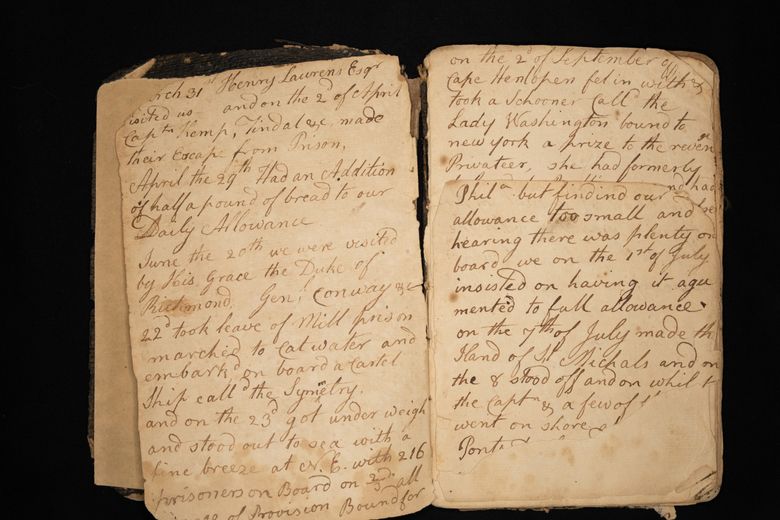 rch 31st Henry Laurens Esqr
visited us and on the 2d of April
Captn Kemp, Tindal &c, made
their Escape from Prison,
April the 29th Had an Addition
of half a pound of bread to our
Daily Allowance
June the 20th we were visited
by His Grace the Duke of
Richmond, Genl Conway &c
22d took leave of Mill prison
marched to Catwater and
embarkd on board a Cartel
Ship calld the Symetry.
and on the 23d got under weigh
and stood out to sea with a
fine breeze at N. E. with 216
prisoners on Board on all
of Provision Bound for
on the 2d of September of
Cape Henlopen fel in with &
took a Schooner Call the
Lady Washington bound to
new york a prize to the
Privateer, she had formerly
and had
Phila but findind our
allowance too small and
hearing there was plenty on
board we on the 1st of July
insisted on having it agu
mented to full allowance
on the 7th of July made th
Iland of St Michals and on
the 8 stood off and on whilst
the Captn & a few of
went on shore
Ponta